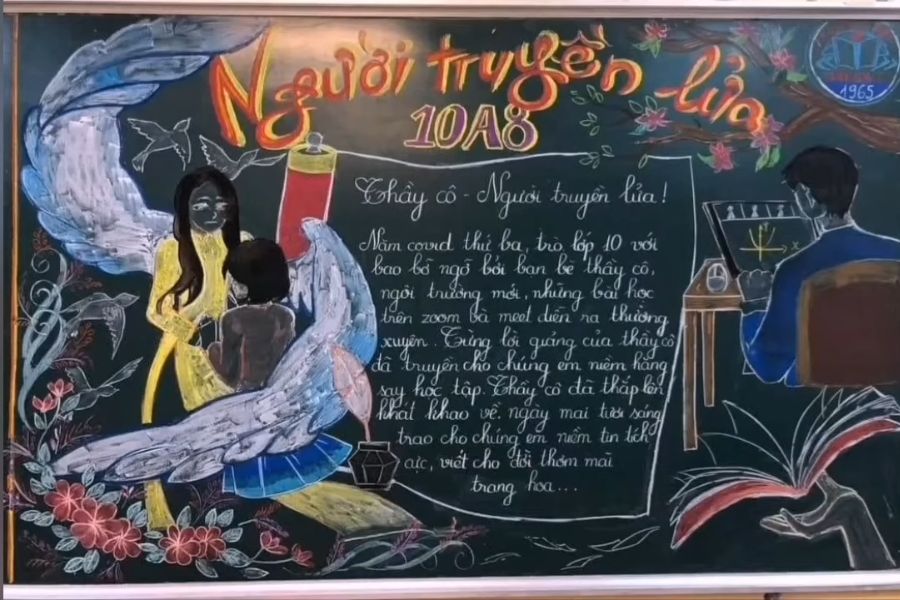 Người truyền lửa
10A8
1965
Thầy cô - Người truyền lửa!
Năm covid thứ ba, trò lớp 10 với
bao bỡ ngỡ bởi bạn bè thầy cô,
ngôi trường mới, những bài học
trên zoom và meet diễn ra thường
xuyên. Từng lời giảng của thầy cô
đã truyền cho chúng em niềm hăng
say học tập. Thầy cô đã thắp lên
khát khao về, ngày mai tươi sáng
trao cho chúng em niềm tin tích
cực, viết cho đời thêm mãi
trang hoa...
y
x